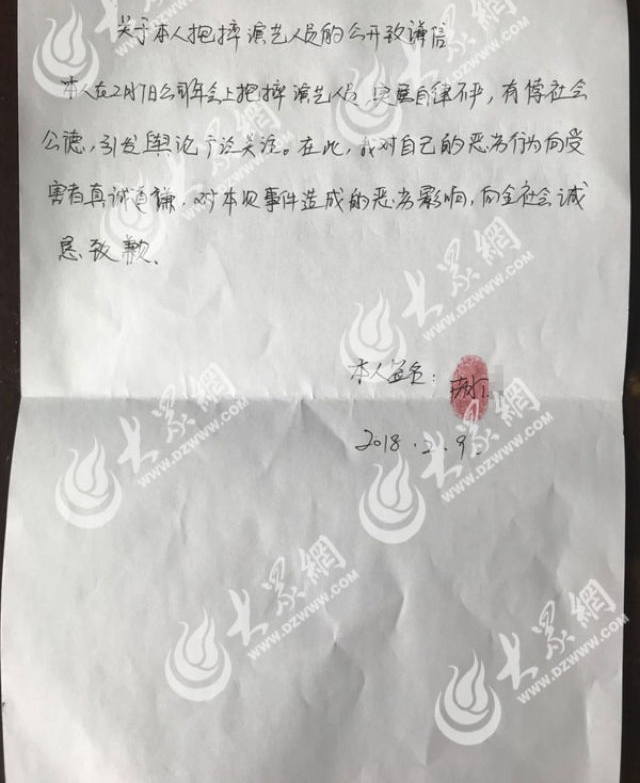 关于本人抱摔演艺人员的公开致谦信
本人在2月7日公司年会上抱摔演艺人员,实属自律不严,有悖社会
公德,引发舆论广泛关注。在此,我对自己的恶劣行为向受
害者真诚道谦,对本次事件造成的恶劣影响,向全社会诚
恳致歉。
本人签名:
2018.2.9.
大眾網
WWW.DZWWW.COM
大眾網
WWW.DZWWW.COM
大眾網
WWW.DZWWW.COM
大眾網
WWW.DZWWW.COM
大眾網
WWW.DZWWW.COM
大眾網
WWW.DZWWW.COM
大眾網
WWW.DZWWW.COM